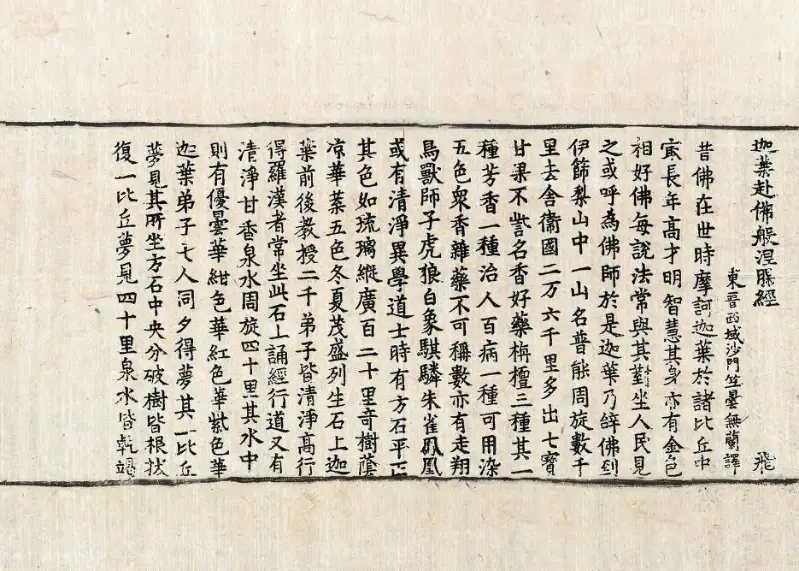 迦葉赴佛般涅槃經 飛
東晉西域沙門竺曇無蘭譯
昔佛在世時摩訶迦葉於諸比丘中
冣長年高才明智慧其身亦有金色
相好佛每說法常與其對坐人民見
之或呼為佛師於是迦葉乃辭佛到
伊篩梨山中一山名普能周旋數千
里去舍衞國二万六千里多出七寶
甘果不訾名香好藥栴檀三種其一
種芳香一種治人百病一種可用染
五色衆香雜藥不可稱數亦有走翔
鳥獸師子虎狼白象騏驎朱雀鳳凰
或有清淨異學道士時有方石平正
其色如琉璃縱廣百二十里奇樹蔭
凉華葉五色冬夏茂盛列生石上迦
葉前後教授二千弟子皆清淨高行
得羅漢者常坐此石上誦經行道又有
清淨甘香泉水周旋四十里其水中
則有優曇華紺色華紅色華紫色華
迦葉弟子七人同夕得夢其一比丘
夢見其所坐方石中央分破樹皆根拔
復一比丘夢見四十里泉水皆乾竭